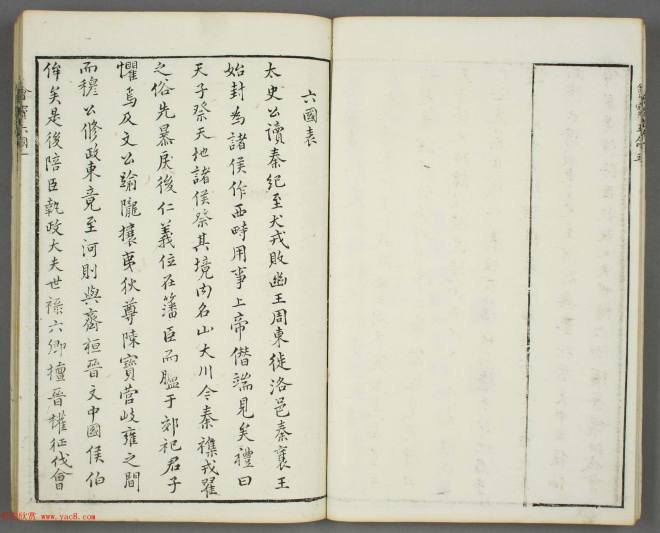 六國表
太史公讀秦紀至犬戎敗幽王周東徙洛邑秦襄王
始封為諸侯作西畤用事上帝僭端見矣禮曰
天子祭天地諸侯祭其境內名山大川今秦襍戎翟
之俗先暴戾後仁義位在藩臣而臚于郊祀君子
懼焉及文公踰隴攘夷狄尊陳寶營岐雍之間
而穆公修政東竟至河則與齊桓晉文中國侯伯
侔矣是後陪臣執政大夫世祿六卿擅晉權征伐會
www.yac8.com